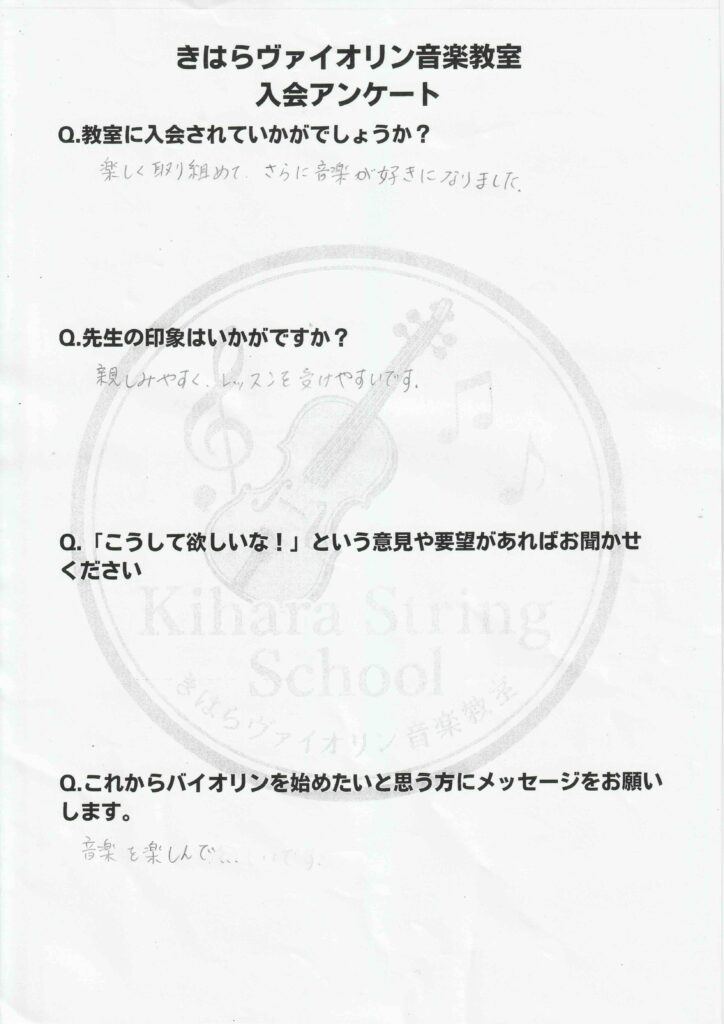 きはらヴァイオリン音楽教室
入会アンケート
Q.教室に入会されていかがでしょうか？
楽しく取り組めて、さらに音楽が好きになりました。
Q.先生の印象はいかがですか？
親しみやすく、レッスンを受けやすいです。
Q.「こうして欲しいな！」という意見や要望があればお聞かせ
ください
Kihara String
School
きはらヴァイオリン音楽教室
Q.これからバイオリンを始めたいと思う方にメッセージをお願い
します。
音楽を楽しんで...